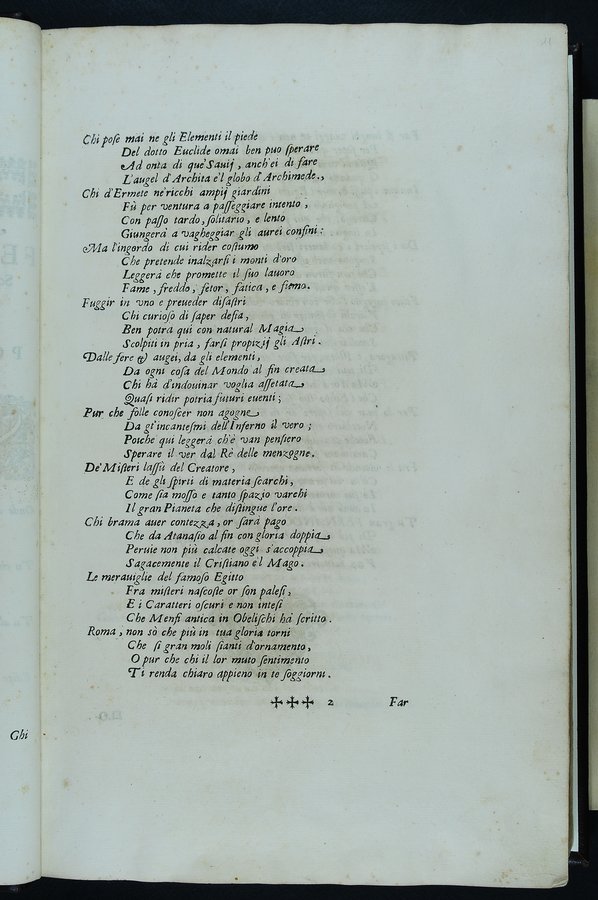 Chi pose mai ne gli Elementi il piede
Del dotto Euclide omai ben puo sperare
Ad onta di que' Sauij, anch'ei di fare
L'augel d'Archita e'l globo d'Archimede.
Chi d'Ermete ne' ricchi ampij giardini
Fù per ventura a passeggiare intento,
Con passo tardo, solitario, e lento
Giungerà a vagheggiar gli aurei confini:
Ma l'ingordo di cui rider costumo
Che pretende inalzarsi i monti d'oro
Leggerà che promette il suo lauoro
Fame, freddo, fetor, fatica, e fiemo.
Fuggir in vno e preueder disastri
Chi curioso di saper desia,
Ben potrà qui con natural Magia
Scolpiti in pria, farsi propizij gli Astri.
Dalle fere & augei, da gli elementi,
Da ogni cosa del Mondo al fin creata
Chi hà d'indouinar voglia assetata
Quasi ridir potria futuri euenti;
Pur che folle conoscer non agogne
Da gl'incantesmi dell'Inferno il vero;
Poiche qui leggerà ch'è van pensiero
Sperare il ver dal Rè delle menzogne.
De' Misteri lassù del Creatore,
E de gli spirti di materia scarchi,
Come sia mosso e tanto spazio varchi
Il gran Pianeta che distingue l'ore.
Chi brama auer contezza, or sarà pago
Che da Atanasio al fin con gloria doppia
Peruie non più calcate oggi s'accoppia
Sagacemente il Cristiano e'l Mago.
Le merauiglie del famoso Egitto
Fra misteri nascoste or son palesi,
E i Caratteri oscuri e non intesi
Che Menfi antica in Obelischi hà scritto.
Roma, non sò che più in tua gloria torni
Che si gran moli sianti d'ornamento,
O pur che chi il lor muto sentimento
Ti renda chiaro appieno in te soggiorni.
✢✢✢ 2 Far
Ghi